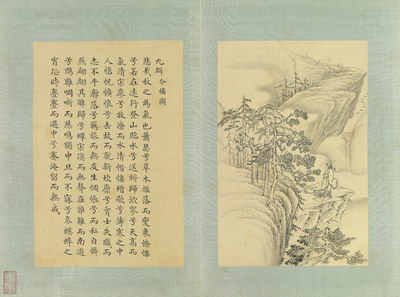 九辯 今補圖
悲哉秋之為氣也蕭瑟兮草木搖落而變衰憭慄
兮若在遠行登山臨水兮送將歸泬寥兮天高而
氣清寂寥兮收潦而水清憯悽增欷兮薄寒之中
人愴怳懭悢兮去故而就新坎廩兮貧士失職而
志不平廓落兮羇旅而無友生惆悵兮而私自憐
燕翩翩其辭歸兮蟬寂漠而無聲雁廱廱而南遊
兮鵾雞啁哳而悲鳴獨申旦而不寐兮哀蟋蟀之
宵征時亹亹而過中兮蹇淹留而無成